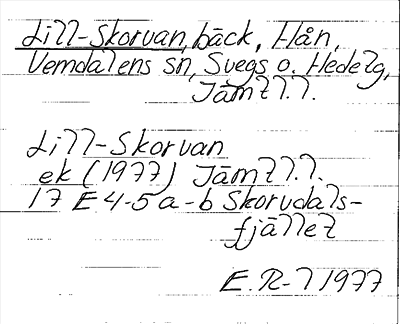 Lill-Skorvan, bäck, Hån,
Vemdalens sn, Svegs o. Hedelg,
Jämtl.l.
Lill-Skorvan
ek (1977) Jämtl.l.
17 E 4-5 a-b Skorvdals-
fjället
E.R-l 1977